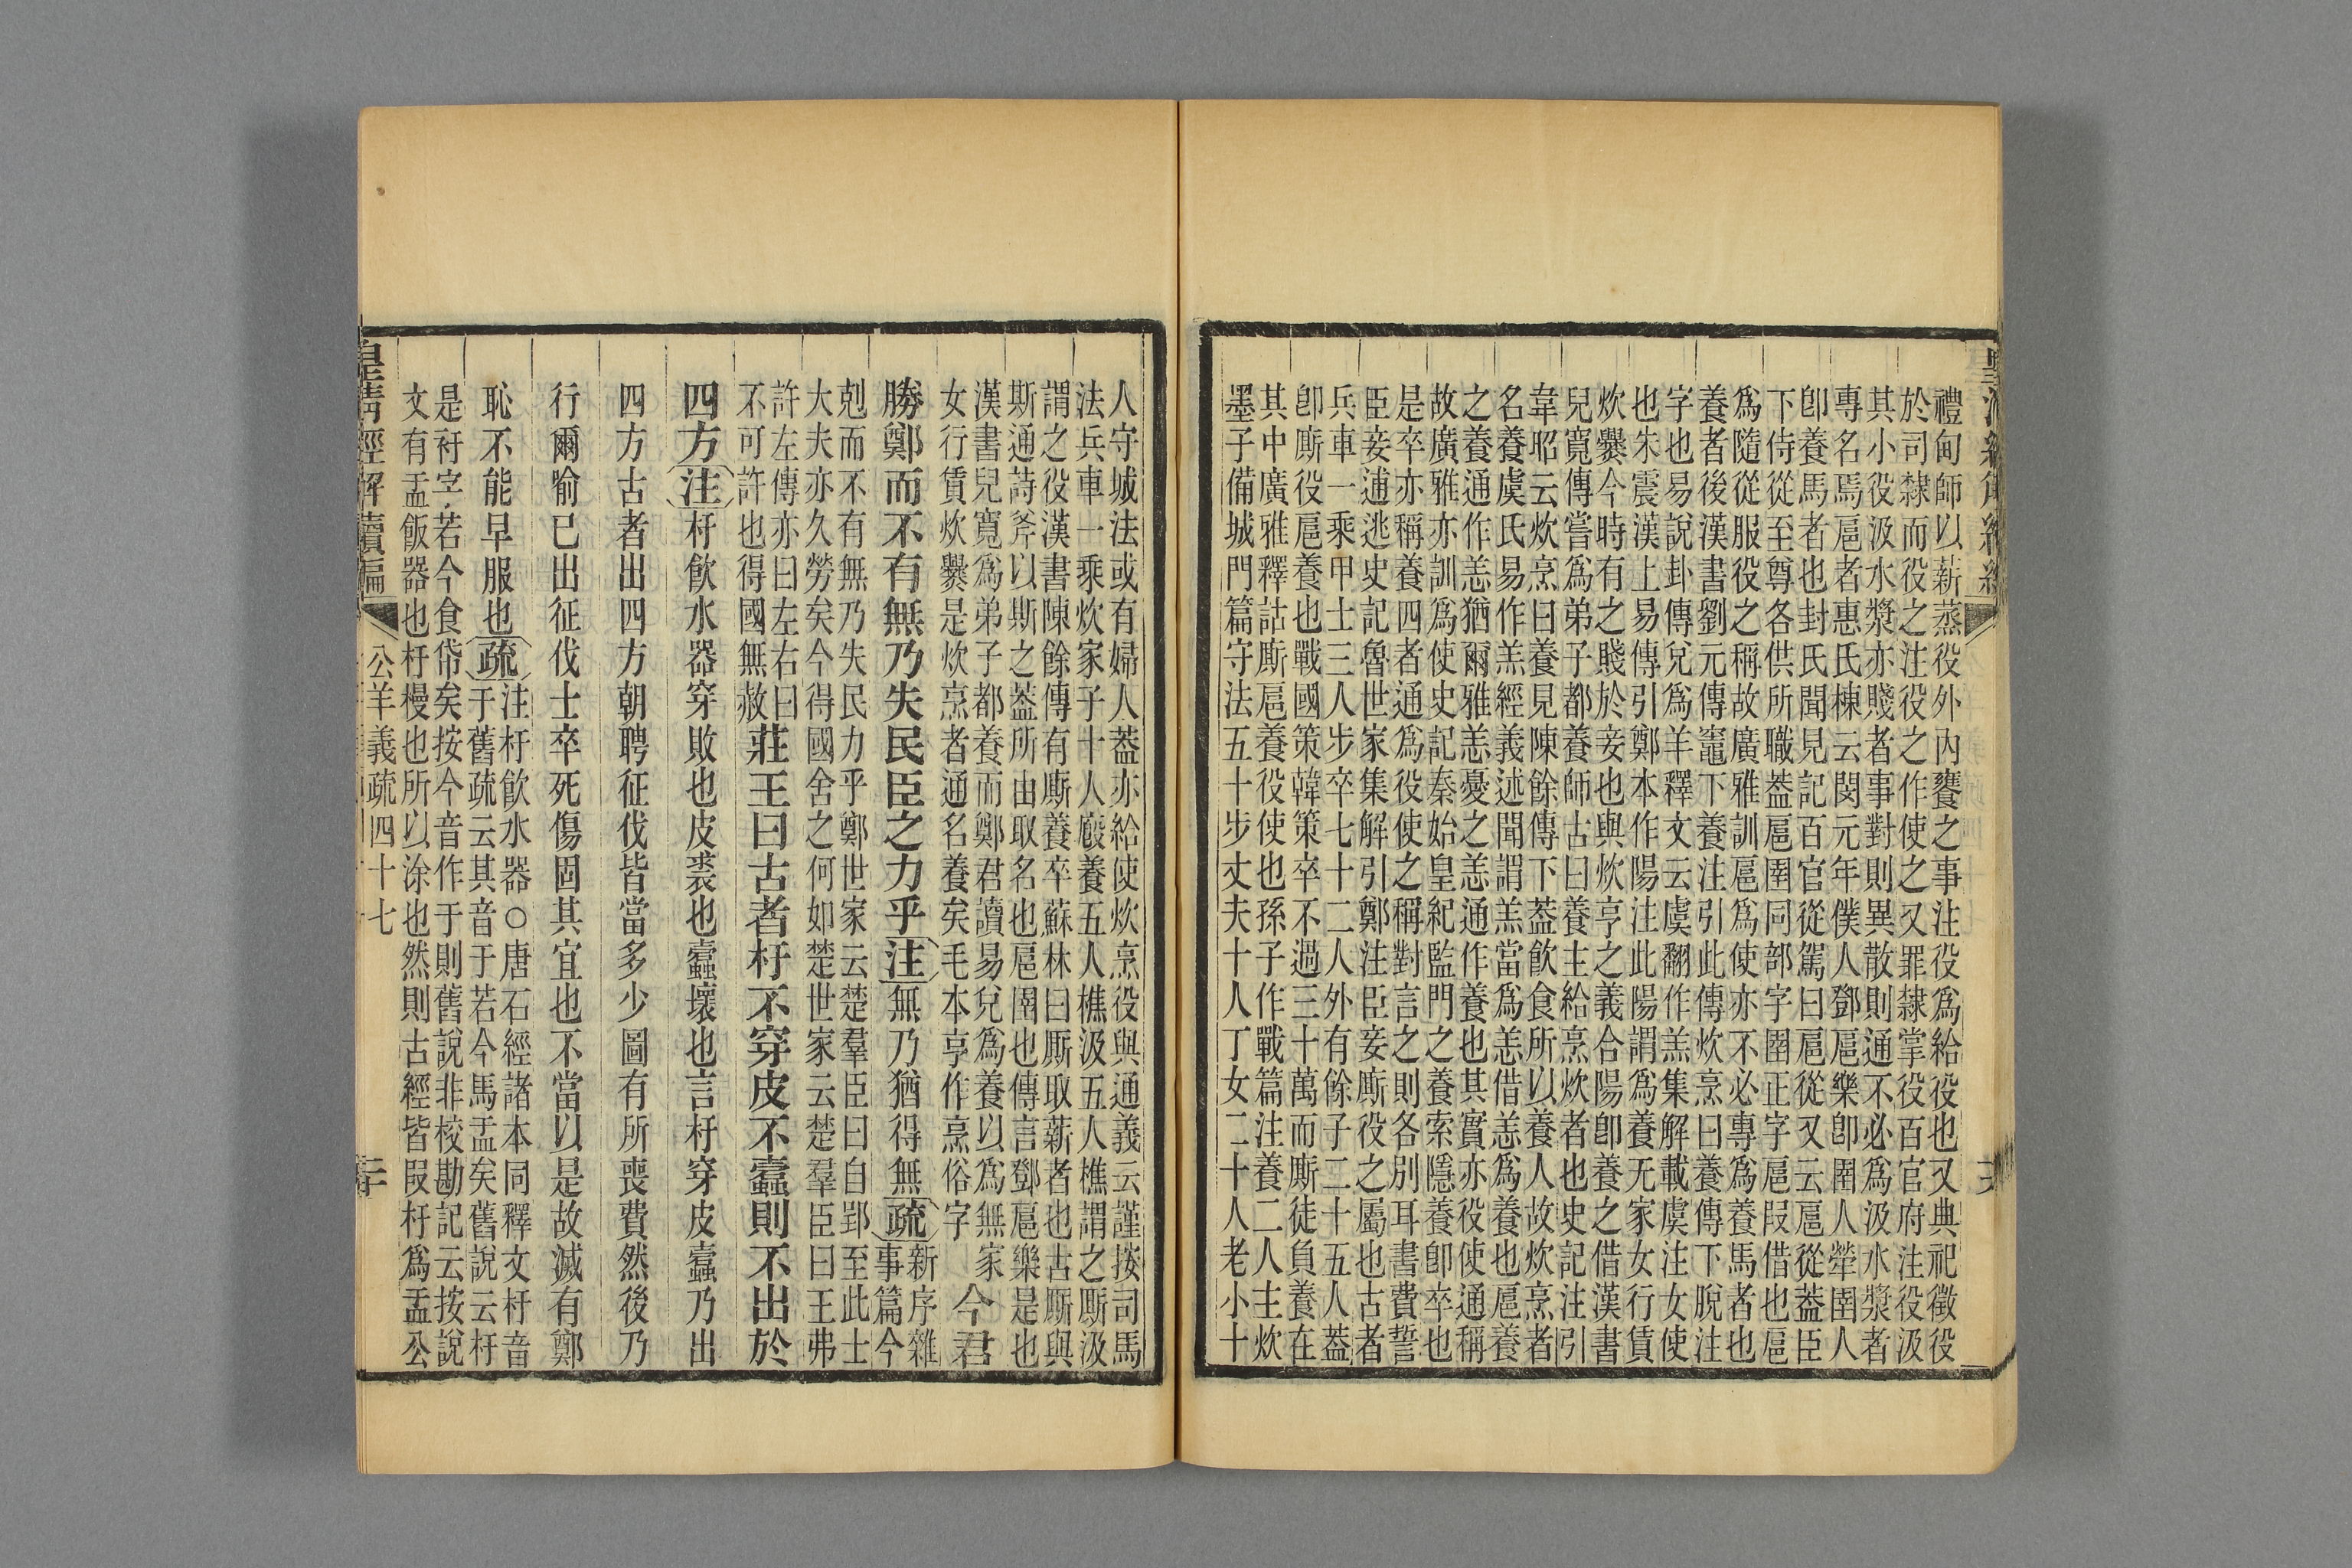 禮甸師以薪蒸役外內饔之事注役爲給役也又典祀徵役
於司隸而役之注役之作使之又罪隸掌役百官府注役汲
其小役汲水漿亦賤者事對則異散則通不必爲汲水漿者
專名焉扈者惠氏棟云閔元年僕人鄧扈樂卽圉人犖圉人
卽養馬者也封氏聞見記百官從駕曰扈從又云扈從葢臣
下侍從至尊各供所職葢扈圉同部字圉正字扈叚借也扈
爲隨從服役之稱故廣雅訓扈爲使亦不必專爲養馬者也
養者後漢書劉元傳竈下養注引此傳炊烹曰養傳下脫注
字也易說卦傳兌爲羊釋文云虞翻作羔集解載虞注女使
也朱震漢上易傳引鄭本作陽注此陽謂爲養无家女行賃
炊爨今時有之賤於妾也與炊亨之義合陽卽養之借漢書
兒寬傳嘗爲弟子都養師古曰養主給烹炊者也史記注引
韋昭云炊烹曰養見陳餘傳下葢飮食所以養人故炊烹者
名養虞氏易作羔經義述聞謂羔當爲恙借恙爲養也扈養
之養通作恙猶爾雅恙憂之恙通作養也其實亦役使通稱
故廣雅亦訓爲使史記秦始皇紀監門之養索隱養卽卒也
是卒亦稱養四者通爲役使之稱對言之則各別耳書費誓
臣妾逋逃史記魯世家集解引鄭注臣妾廝役之屬也古者
兵車一乘甲士三人步卒七十二人外有餘子二十五人葢
卽廝役扈養也戰國策韓策卒不過三十萬而廝徒負養在
其中廣雅釋詁廝扈養役使也孫子作戰篇注養二人主炊
墨子備城門篇守法五十步丈夫十人丁女二十人老小十
人守城法或有婦人葢亦給使炊烹役與通義云謹按司馬
法兵車一乘炊家子十人廏養五人樵汲五人樵謂之廝汲
謂之役漢書陳餘傳有廝養卒蘇林曰厮取薪者也古厮與
斯通詩斧以斯之葢所由取名也扈圉也傳言鄧扈樂是也
漢書兒寬爲弟子都養而鄭君讀易兌爲養以爲無家
女行賃炊爨是炊烹者通名養矣毛本亨作烹俗字
今君
勝鄭而不有無乃失民臣之力乎注無乃猶得無疏新序雜
事篇今
剋而不有無乃失民力乎鄭世家云楚羣臣曰自郢至此士
大夫亦久勞矣今得國舍之何如楚世家云楚羣臣曰王弗
許左傳亦曰左右曰
不可許也得國無赦
莊王曰古者杅不穿皮不蠹則不出於
四方注杅飮水器穿敗也皮裘也蠹壞也言杅穿皮蠹乃出
四方古者出四方朝聘征伐皆當多少圖有所喪費然後乃
行爾喻已出征伐士卒死傷固其宜也不當以是故滅有鄭
恥不能早服也疏注杅飮水器○唐石經諸本同釋文杅音
于舊疏云其音于若今馬盂矣舊說云杅
是䄨字若今食帒矣按今音作于則舊說非校勘記云按說
文有盂飯器也杅槾也所以涂也然則古經皆叚杅爲盂公
皇淸經解續編
公羊義疏四十七